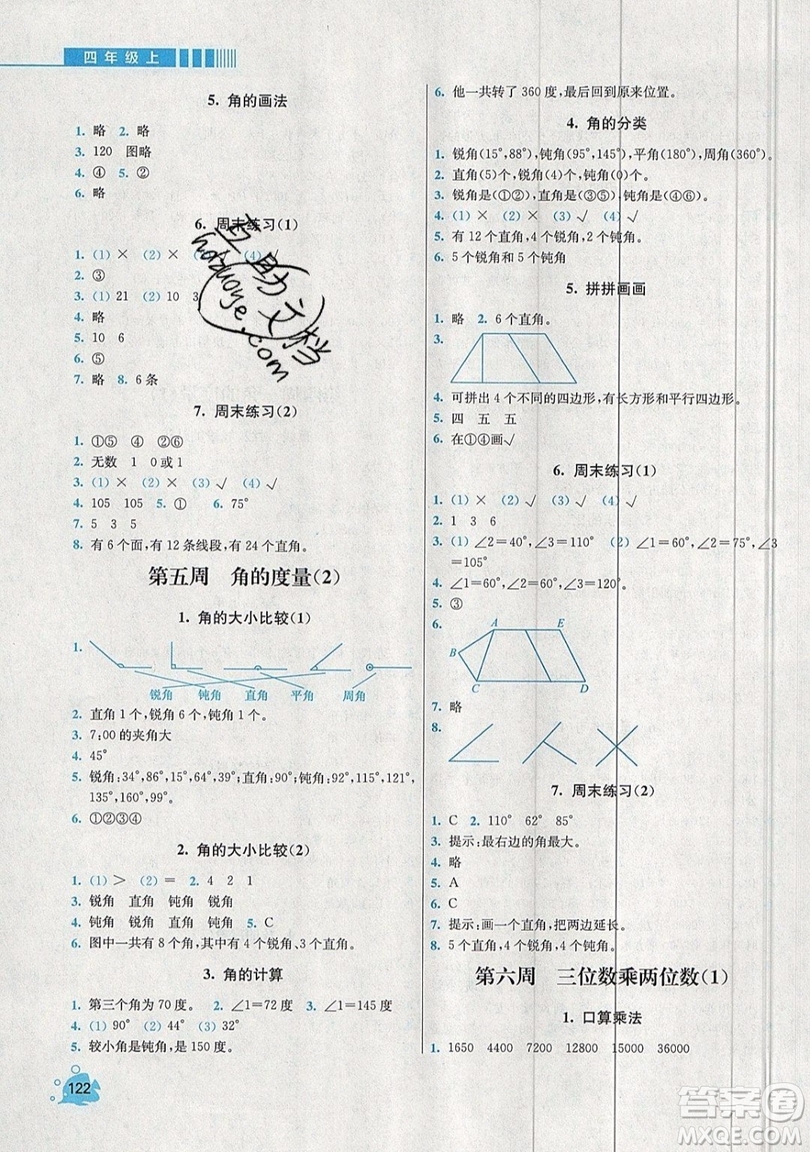 四年级上
5. 角的画法
1. 略 2. 略
3. 120 图略
4. ④ 5. ②
6. 略
6. 周末练习(1)
1. (1) × (2) × (4) √
2. ③
3. (1) 21 (2) 10 3
4. 略
5. 10 6
6. ⑤
7. 略 8. 6条
7. 周末练习(2)
1. ①⑤ ④ ②⑥
2. 无数 1 0或1
3. (1) × (2) × (3) √ (4) √
4. 105 105 5. ① 6. 75°
7. 5 3 5
8. 有6个面,有12条线段,有24个直角。
第五周 角的度量(2)
1. 角的大小比较(1)
1.
锐角 钝角 直角 平角 周角
2. 直角1个,锐角6个,钝角1个。
3. 7:00的夹角大
4. 45°
5. 锐角:34°,86°,15°,64°,39°;直角:90°;钝角:92°,115°,121°,
135°,160°,99°。
6. ①②③④
2. 角的大小比较(2)
1. (1) > (2) = 2. 4 2 1
3. 锐角 直角 钝角 锐角
4. 钝角 锐角 钝角 直角 5. C
6. 图中一共有8个角,其中有4个锐角、3个直角。
3. 角的计算
1. 第三个角为70度。 2. ∠1=72度 3. ∠1=145度
4. (1) 90° (2) 44° (3) 32°
5. 较小角是钝角,是150度。
122
6. 他一共转了360度,最后回到原来位置。
4. 角的分类
1. 锐角(15°,88°),钝角(95°,145°),平角(180°),周角(360°)。
2. 直角(5)个,锐角(4)个,钝角(0)个。
3. 锐角是(①②),直角是(③⑤),钝角是(④⑥)。
4. (1) × (2) × (3) √ (4) ×
5. 有12个直角,4个锐角,2个钝角。
6. 5个锐角和5个钝角
5. 拼拼画画
1. 略 2. 6个直角。
3.
4. 可拼出4个不同的四边形,有长方形和平行四边形。
5. 四 五 五
6. 在①④画√
6. 周末练习(1)
1. (1) × (2) √ (3) × (4) √ (5) √
2. 1 3 6
3. (1) ∠2=40° ∠3=110° (2) ∠1=60° ∠2
=105°
4. ∠1=60°,∠2=60°,∠3=120°。
5. ③
6. A E B C D
7. 略
8.
7. 周末练习(2)
1. C 2. 110° 62° 85°
3. 提示:最右边的角最大。
4. 略
5. A
6. C
7. 提示:画一个直角,把两边延长。
8. 5个直角,4个锐角,4个钝角。
第六周 三位数乘两位数(1)
1. 口算乘法
1. 1650 4400 7200 12800 15000 36000
互助文档
hzbuoye.com
答案圈
MXQE.COM